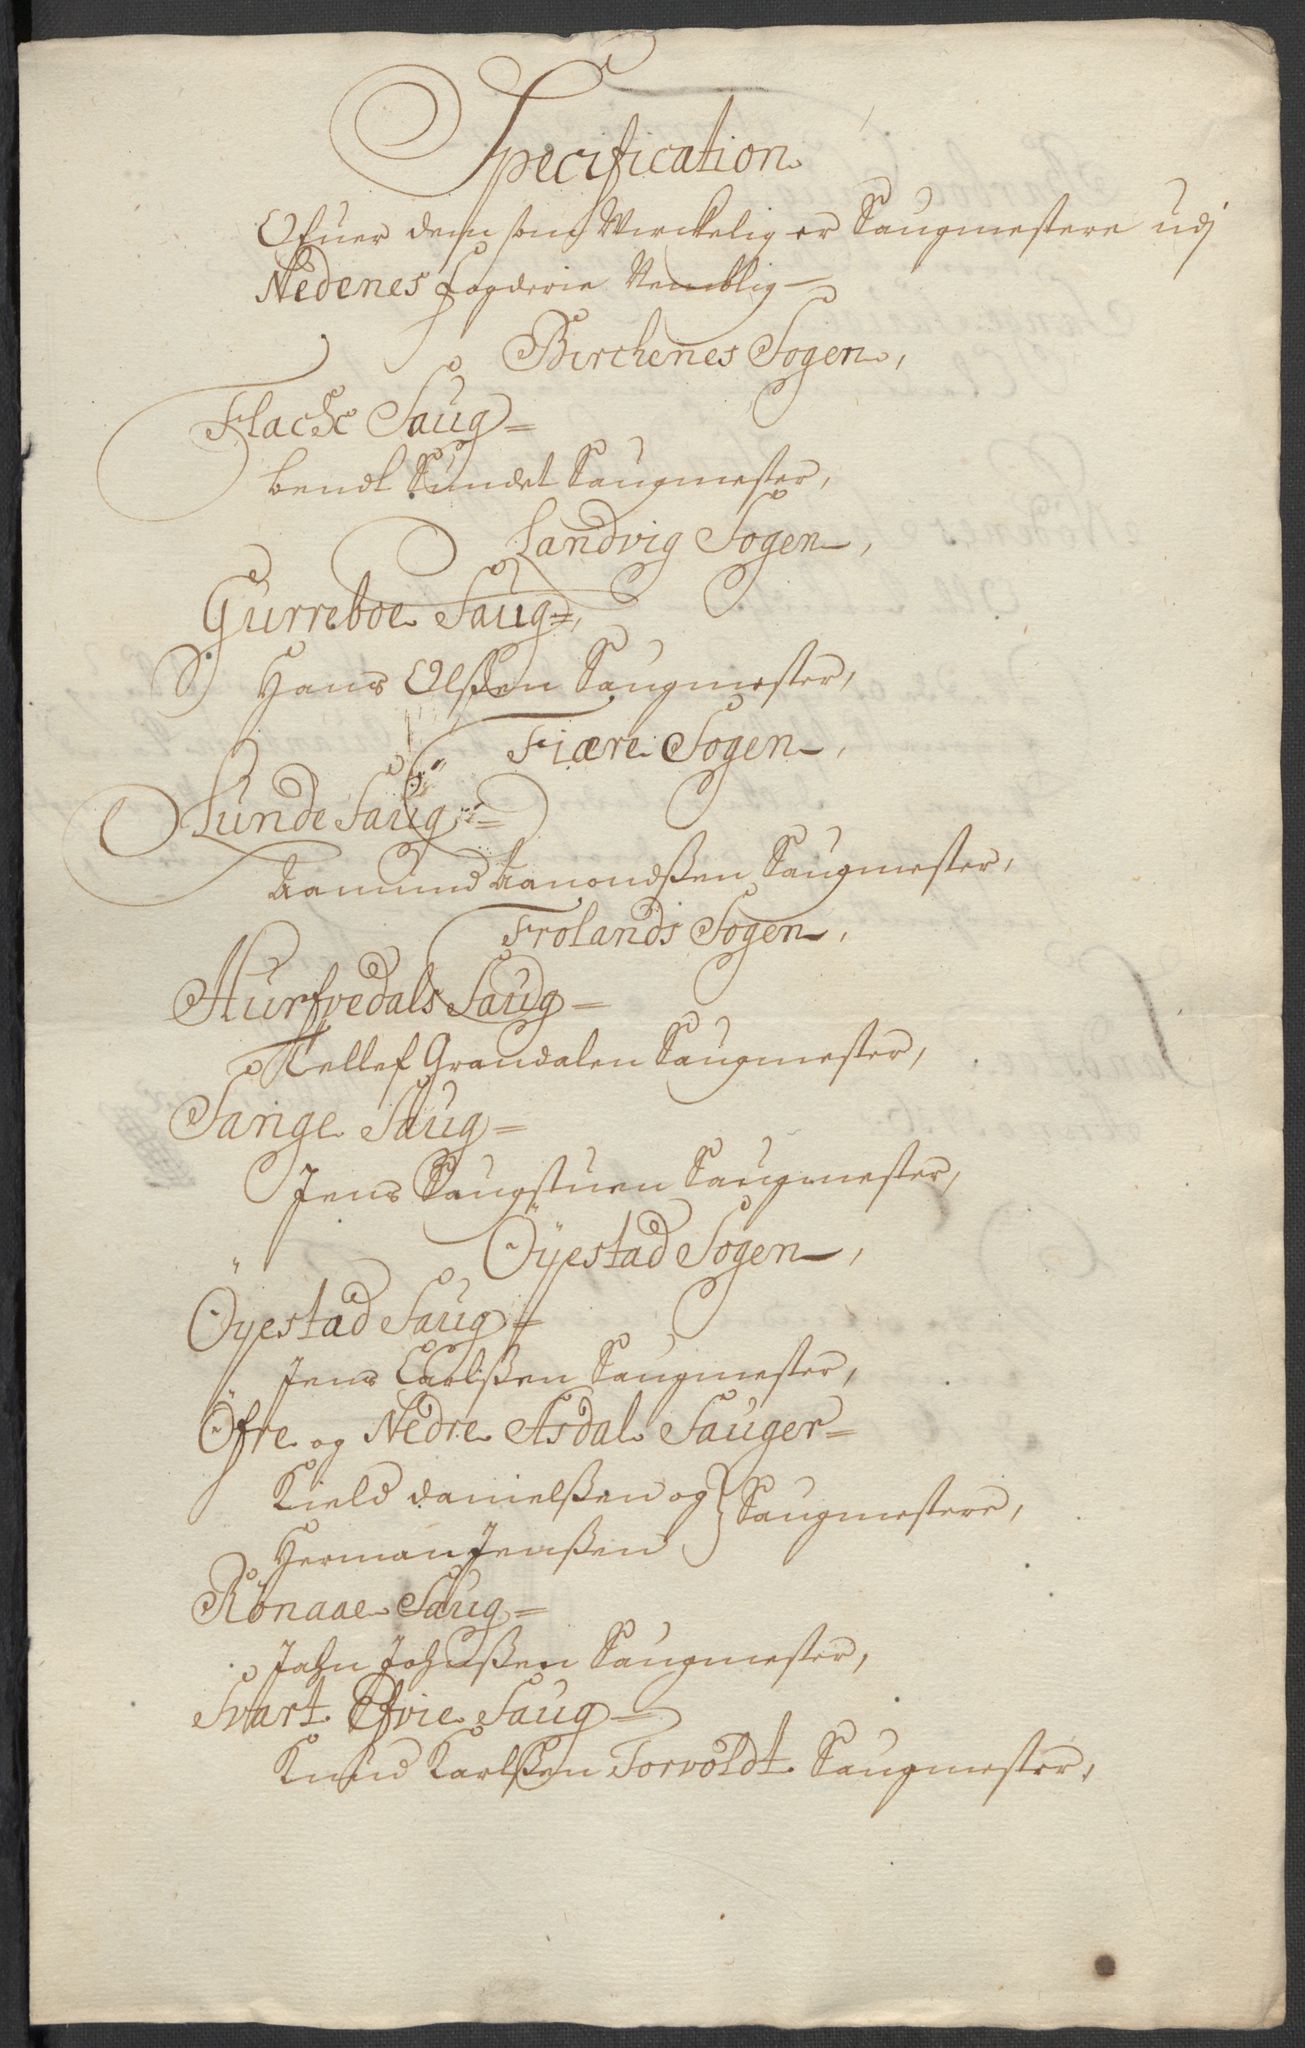 Specification
Ofuer dem som Werckelig er Saugmestere udj
Nedenes fogderie Nemblig
Birchenes Sogen,
Flache Saug=
bendt Sundet Saugmester,
Landvig Sogen,
Gurreboe Saug=,
Hans Olssen Saugmester,
Fiære Sogen,
Lunde Saug=
Aamund Aanondßen Saugmester,
Frolands Sogen,
Hurfvedals Saug=
Tellef Grandalen Saugmester,
Sange Saug=
Jens Saugstuen Saugmester,
Öyestad Sogen,
Öyestad Saug=
Jens Carlßen Saugmester,
Öfre og Nedre Asdal Sauger=
Kield danielßen og } Saugmestere,
Herman Jenßen
Rönaae Saug=
Jahn Johnßen Saugmester,
Svart Saug=
Knud Karlssen Torvoldt Saugmester,